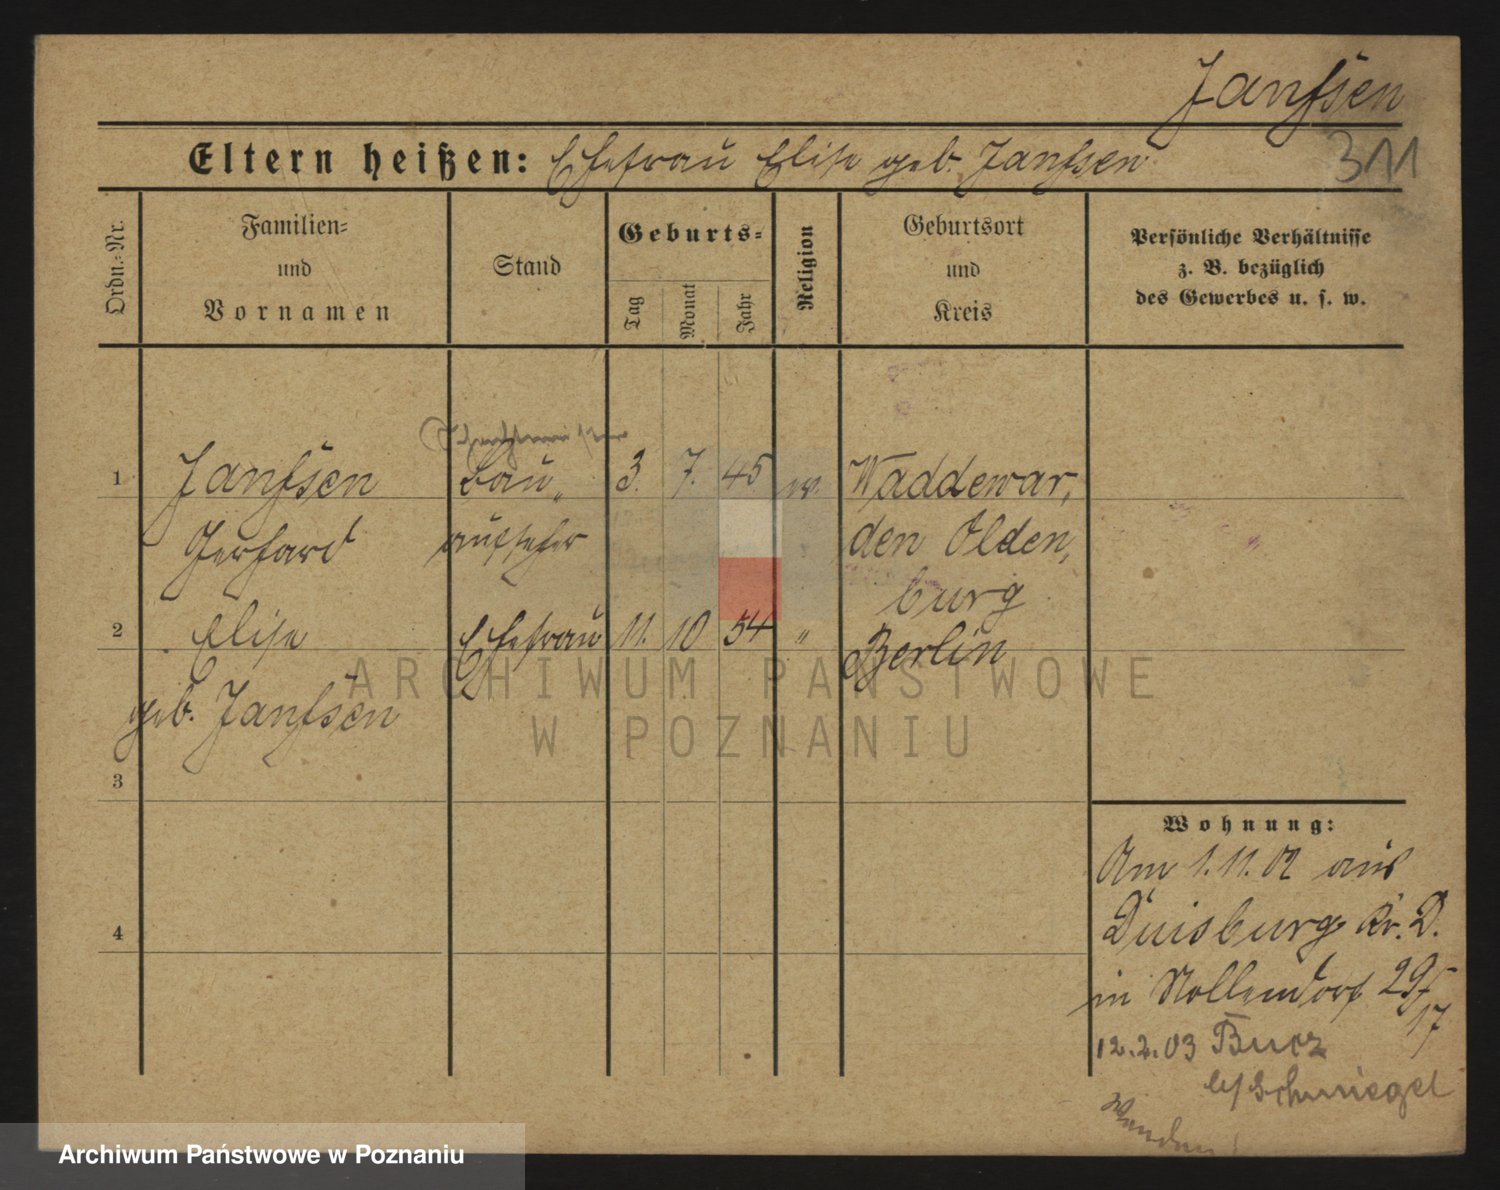 Janſsen
Eltern heißen: Ehefrau Elise geb. Janſsen
311
Ordn.=Nr.
Familien=
und
Vornamen
Stand
Geburts=
Tag
Monat
Jahr
Religion
Geburtsort
und
Kreis
Persönliche Verhältnisse
z. B. bezüglich
des Gewerbes u. s. w.
1 Janſsen Bau„ 3. 7. 45 Waddewar,
Gerhard aufseher den Olden,
burg
2 Elise Ehefrau 11. 10 54 " Berlin
geb. Janſsen
3
4
Wohnung:
Am 1.11.02 aus
Duisburg Kr. D.
in Nollendorf 29/
17
12.2.03 Bucz
b/Schmiegel
Wenden!
ARCHIWUM PAŃSTWOWE
W POZNANIU
Archiwum Państwowe w Poznaniu